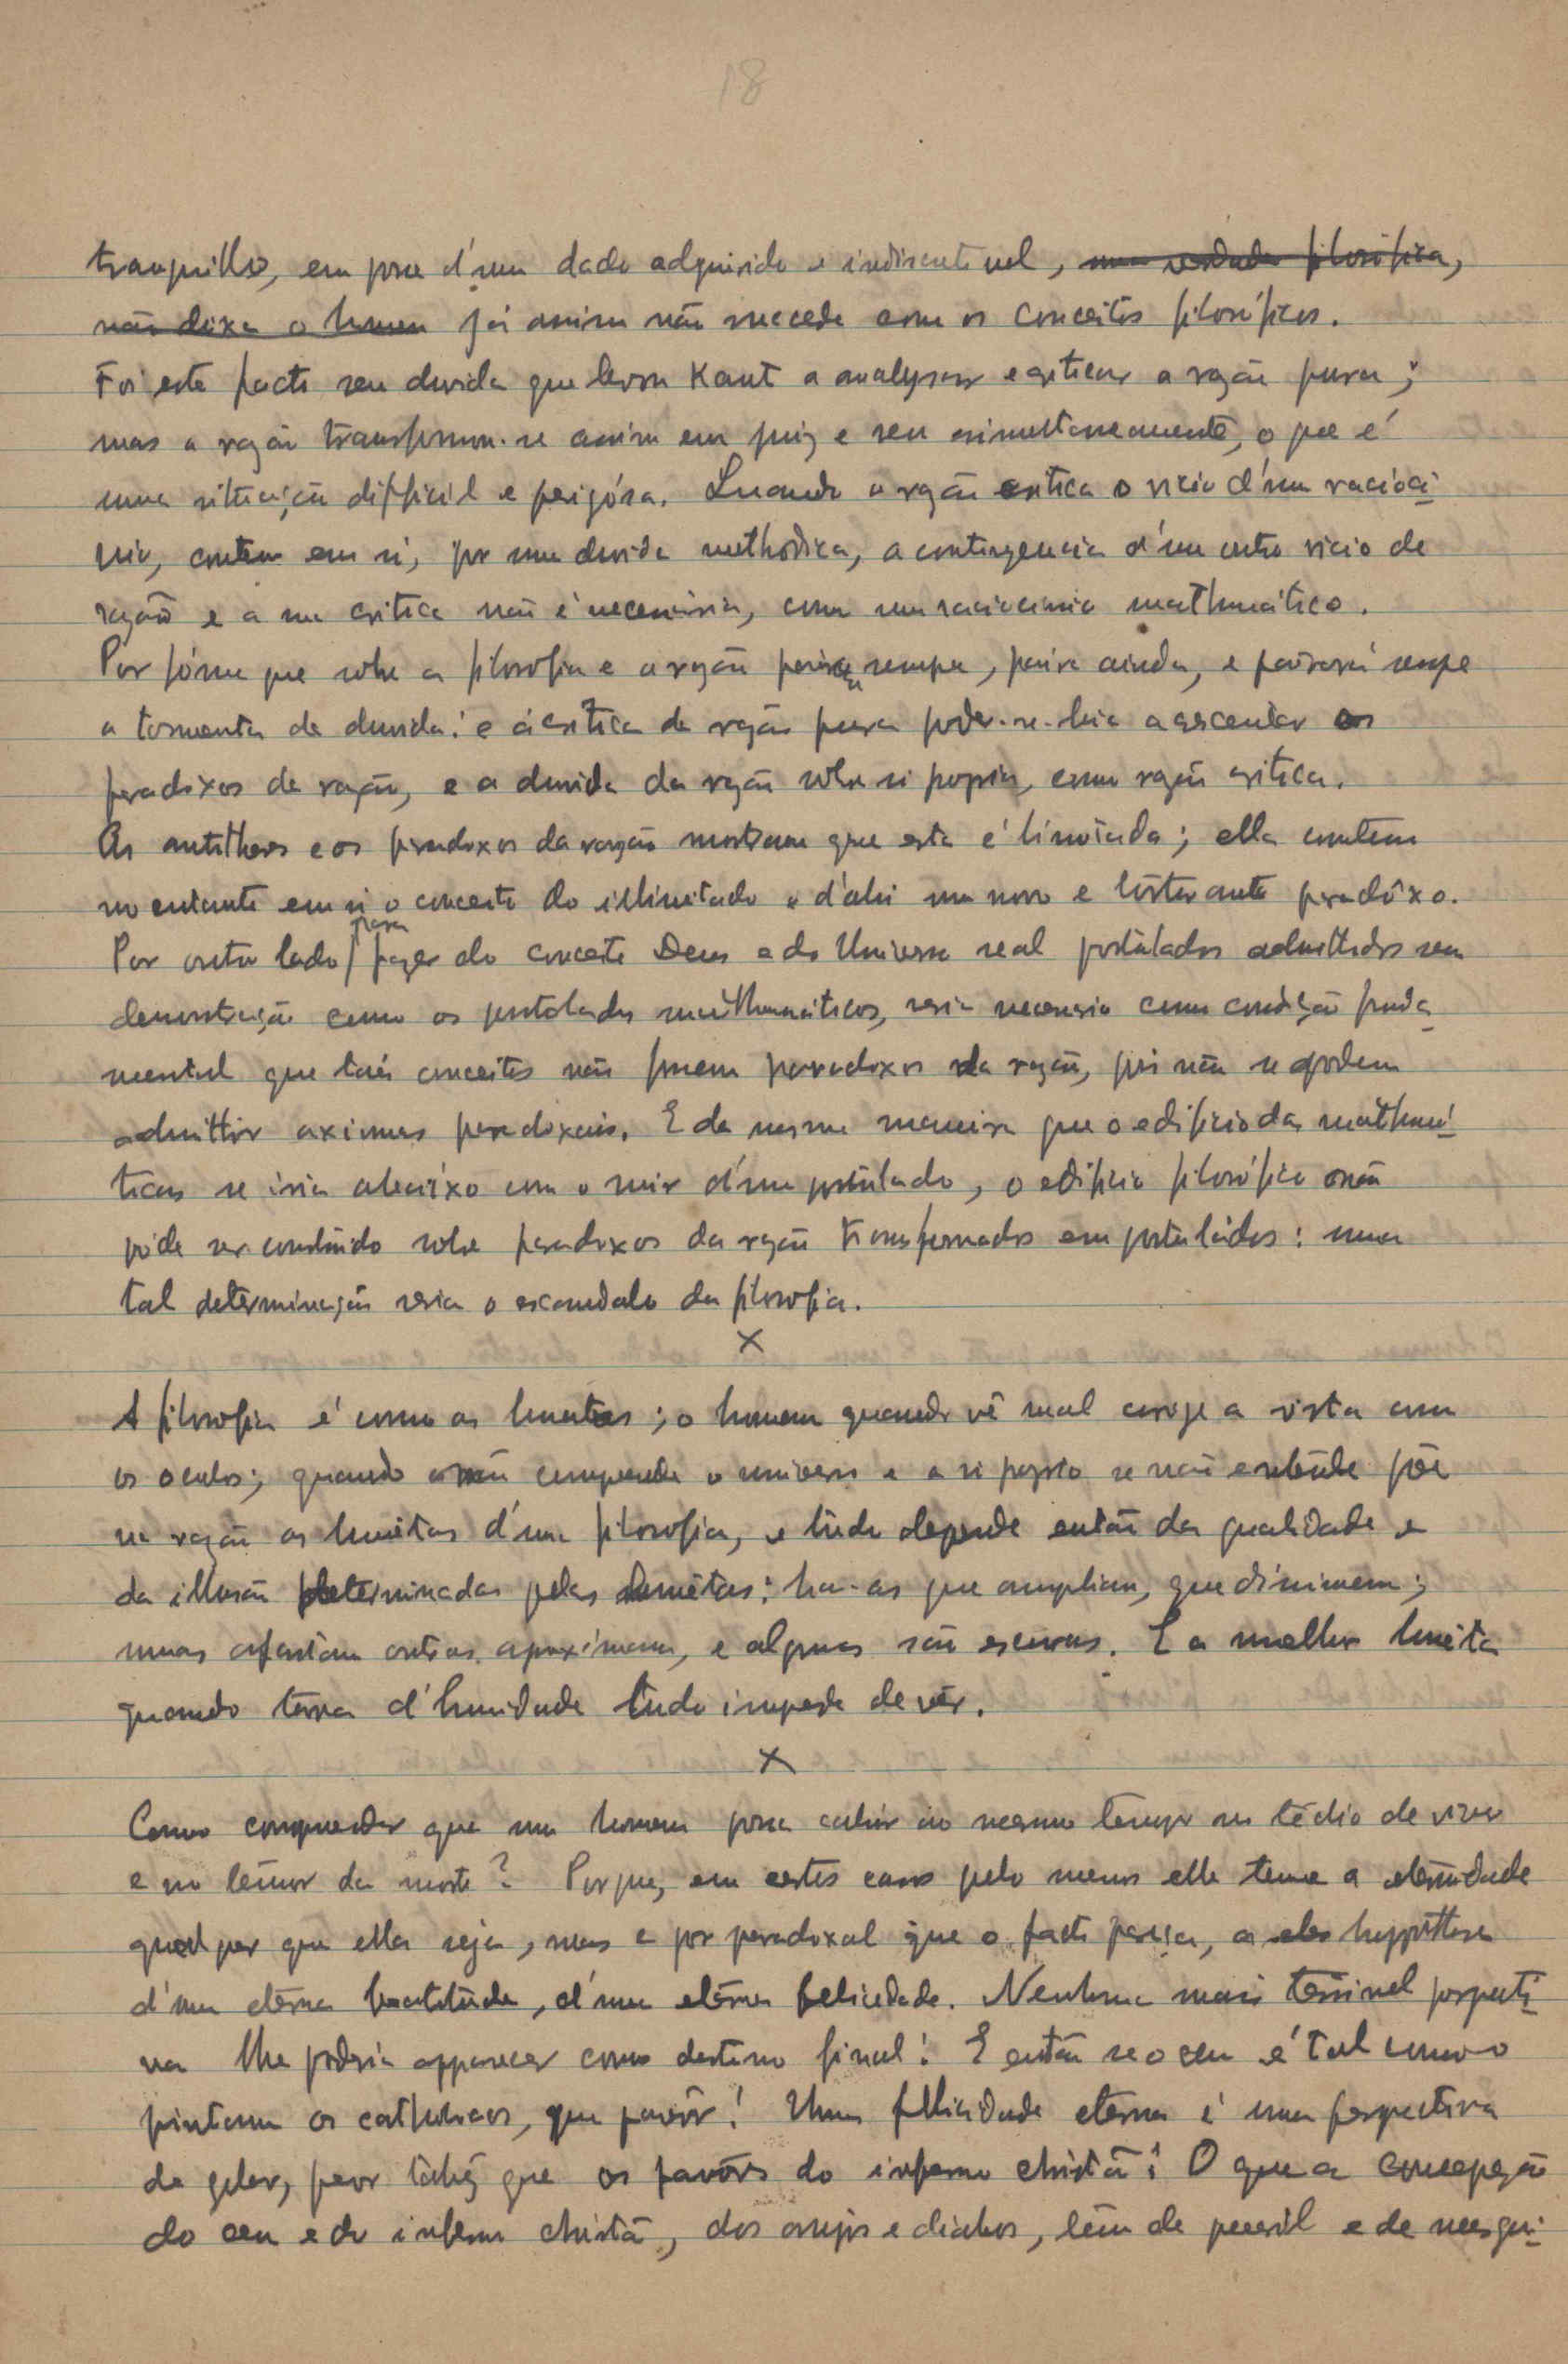 18
tranquillo, em posse d'um dado adquirido e indiscutivel, uma verdade filosofica,
não deixa o homem já assim não succede com os conceitos filosóficos.
Foi este facto sem duvida que levou Kant a analysar e criticar a razão pura;
mas a razão transformou-se assim em juiz e reu simultaneamente, o que é
uma situação difficil e perigósa. Quando a razão critica o vicio d'um racioci-
nio, contem em si, por uma duvida methodica, a contingencia d'um outro vicio de
razão e a sua critica não é necessária, como um raciocinio mathemático.
Por fórma que sobre a filosofia e a razão pairou sempre, paira ainda, e pairará sempre
a tormenta da duvida: e á critica da razão pura poder-se-hia accrescentar os
paradoxos da razão, e a duvida da razão sobre si propria, como razão critica.
As antitheses e os paradoxos da razão mostram que esta é limitada; ella contem
no entanto em si o conceito do illimitado e d'ahi um novo e torturante paradoxo.
Por outro lado para fazer do conceito Deus e do Universo real postulados admittidos sem
demonstração como os postulados mathemáticos, seria necessario como condição funda-
mental que taes conceitos não fossem paradoxos da razão, pois não se podem
admittir axiomas paradoxais. E da mesma maneira que o edificio das mathemá-
ticas se iria abaixo com o ruir d'um postulado, o edificio filosófico não
póde ser construido sobre paradoxos da razão transformados em postulados: uma
tal determinação seria o escandalo da filosofia.
X
A filosofia é como as lunetas; o homem quando vê mal corrige a vista com
os oculos; quando não comprehende o universo e a si proprio se não entende põe
na razão as lunetas d'uma filosofia, e tudo depende então da qualidade e
da illusão determinadas pelas lunetas: ha-as que ampliam, que diminuem;
umas afastam outras aproximam, e algumas são escuras. E a melhor luneta
quando turva d'humidade tudo impede de vêr.
X
Como comprehender que um homem possa cahir ao mesmo tempo no tédio de viver
e no temor da morte? Porque, em certos casos pelo menos elle teme a eternidade
qualquer que ella seja, mas e por paradoxal que o facto pareça, a hypothese
d'uma eterna beatitude, d'uma eterna felicidade. Nenhuma mais terrivel perspecti-
va lhe poderia apparecer como destino final! E então se o ceu é tal como o
pintam os catholicos, que pavôr! Uma felicidade eterna é uma perspectiva
de gelar, peor talvez que os pavôres do inferno christão! O que a concepção
do ceu e do inferno christão, dos anjos e diabos, têm de pueril e de mesqui-